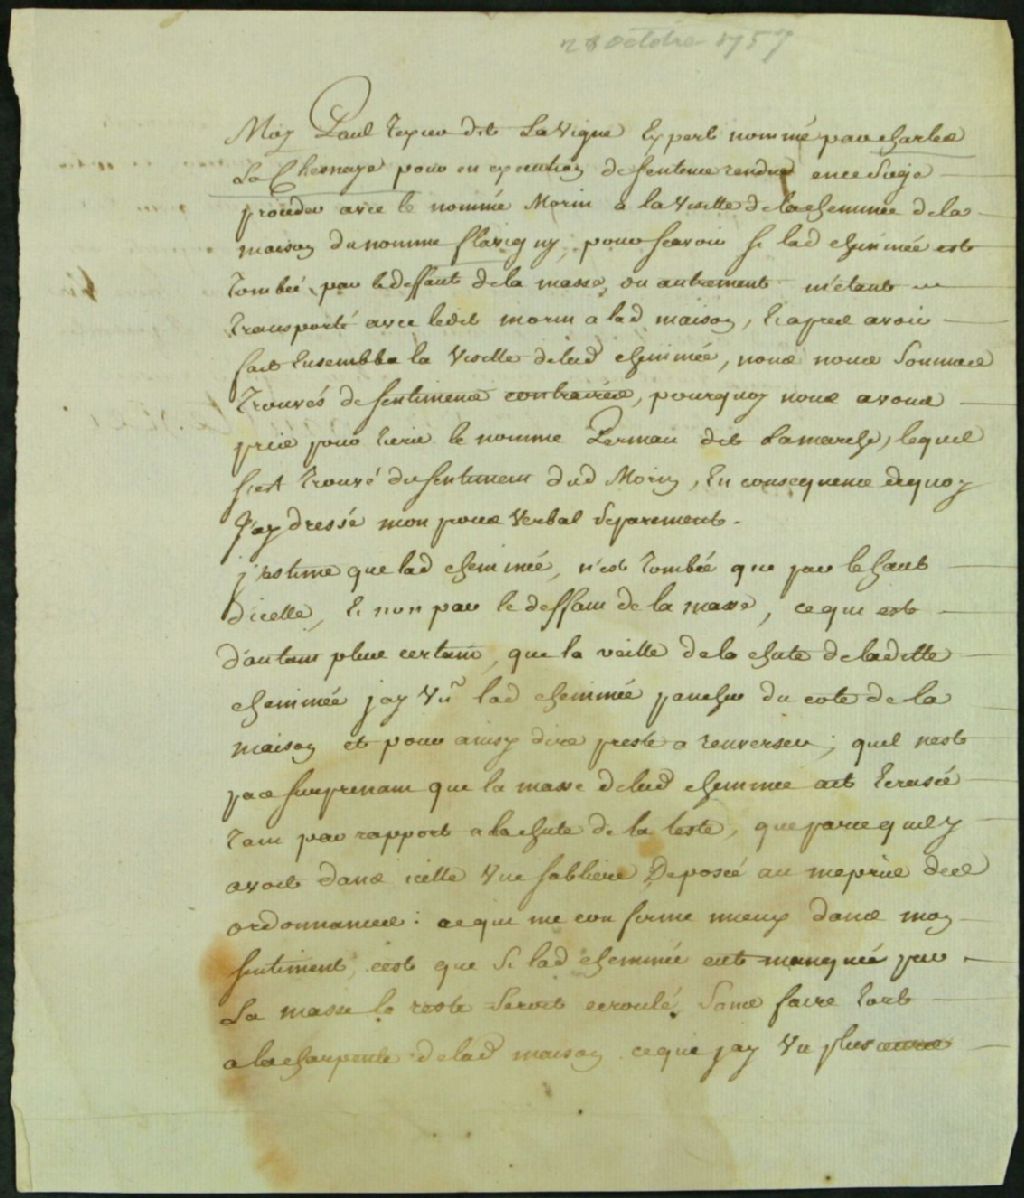 28 octobre 1757
Moy Paul Texier dit La Vigne Expert nommé par charles
La Chesnaye pour en execution de sentence rendue en ce siege
proceder avec le nommé Morin a la Visitte de la cheminée de la
maison du nomme flavigny, pour scavoir si lad cheminée est
Tombée par le deffaut de la masse, ou autrement m'etant
Transporté avec ledit morin a lad maison, Et apres avoir
fait Ensemble la Visitte de lad cheminée, nous nous sommes
Trouvés de sentimens contraires, pourquoy nous avons
prie pour tiers le nomme dit Lamarche, lequel
s'est Trouvé du sentiment dud Morin, En consequence dequoy
J'ay dressé mon proces Verbal separement.
j'estime que lad cheminée, n'est Tombée que par le haut
d'icelle, Et non par le deffaut de la masse, ce qui est
d'autant plus certain, que la veille de la chute de laditte
cheminée j'ay Vu lad cheminée panchee du coté de la
maison et pour ainsy dire preste a renverser; quil nest
pas surprenant que la masse de lad cheminée ait Ecrasée
Tant par rapport a la chute de la teste, que parcequ'il y
avoit dans icelle Une sabliere Deposée au mepris des
ordonnances: ce qui me confirme mieux dans mon
sentiment, c'est que si lad cheminée eut manquée par
La masse le reste seroit ecroulé sans faire Tort
a la charpente de lad maison ce que j'ay Vu plusieurs